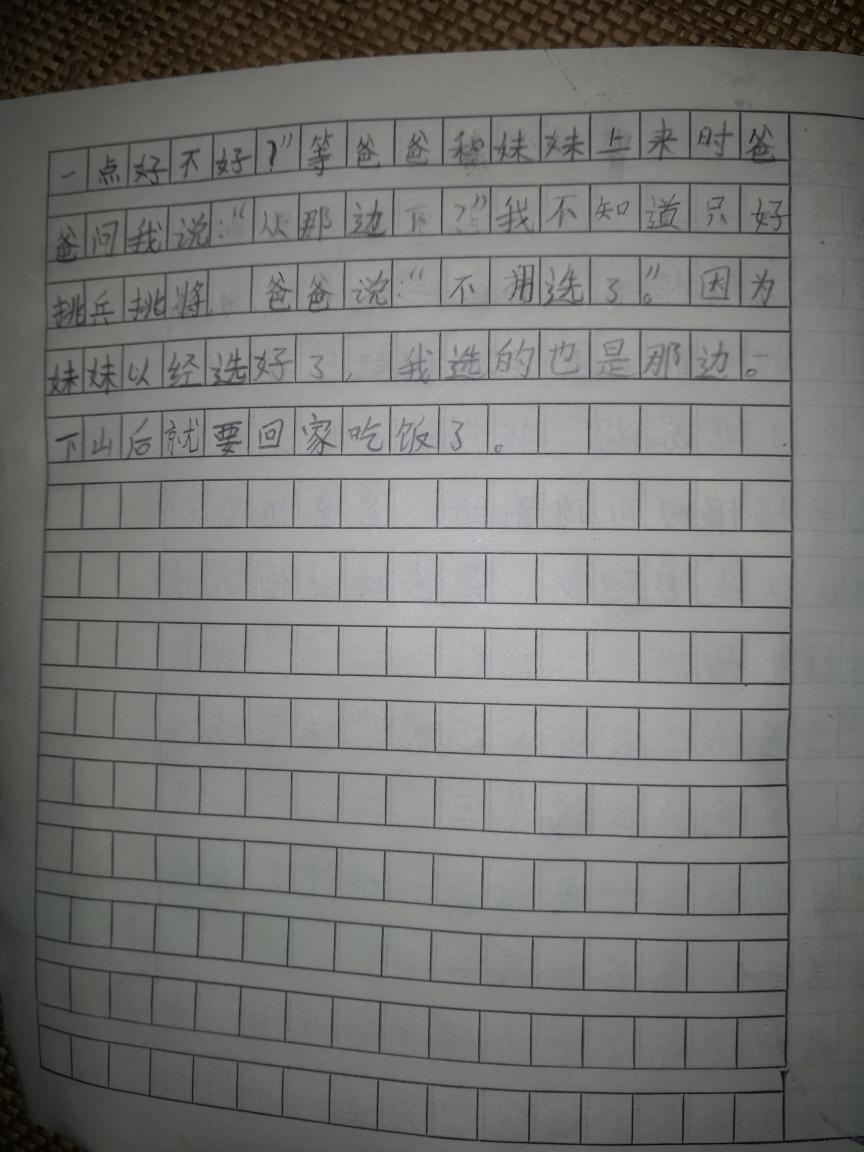 一点好不好？”等爸爸和妹妹上来时爸
爸问我说：“从那边下？”我不知道只好
挑兵挑将，爸爸说：“不用选了”。因为
妹妹以经选好了，我选的也是那边。
下山后就要回家吃饭了。